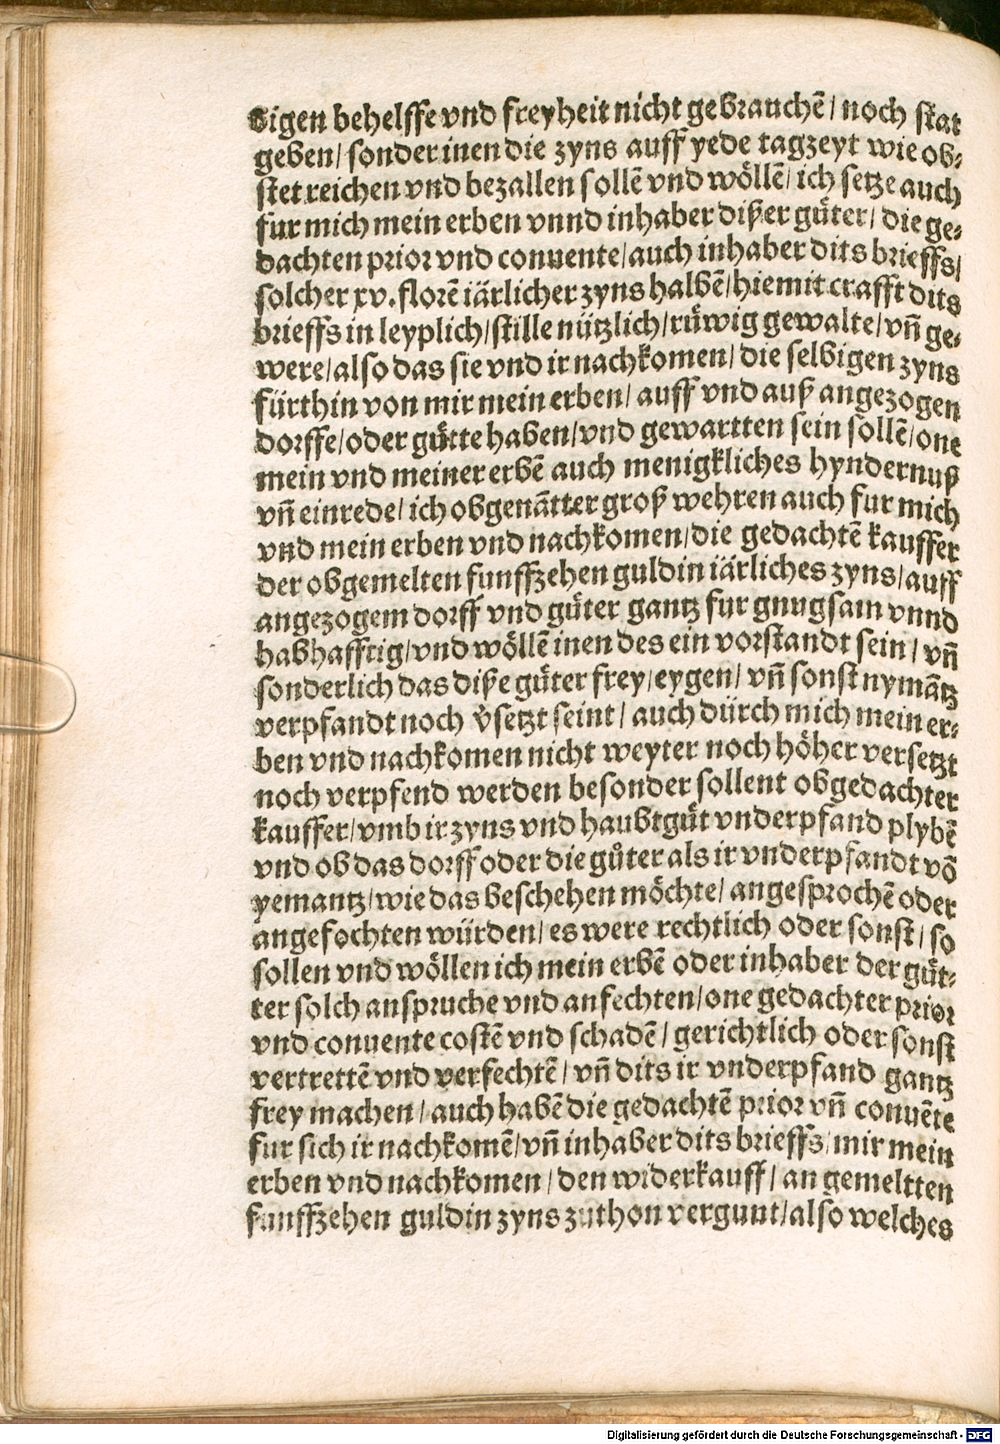 bigen behelffe vnd freyheit nicht gebrauchē/ noch stat
geben/ sonder inen die zyns auff yede tagzeyt wie ob⸗
stet reichen vnd bezallen sollē vnd wöllē/ ich setze auch
fur mich mein erben vnnd inhaber dißer gůter/ die ge⸗
dachten prior vnd conuente/ auch inhaber dits brieffs/
solcher xv. florē iärlicher zyns halbē/ hiemit crafft dits
brieffs in leyplich/ stille nützlich/ růwig gewalte/ vñ ge⸗
were/ also das sie vnd ir nachkomen/ die selbigen zyns
fürthin von mir mein erben/ auff vnd auß angezogen
dorffe/ oder gůtte haben/ vnd gewartten sein sollē/ one
mein vnd meiner erbē auch menigkliches hyndernuß
vñ einrede/ ich obgenātter groß wehren auch fur mich
vnd mein erben vnd nachkomen/ die gedachtē kauffer
der obgemelten funffzehen guldin iärliches zyns/ auff
angezogem dorff vnd gůter gantz fur gnugsam vnnd
habhafftig/ vnd wöllē inen des ein vorstandt sein/ vñ
sonderlich das diße gůter frey/ eygen/ vñ sonst nymātz
verpfandt noch v̓setzt seint/ auch dürch mich mein er⸗
ben vnd nachkomen nicht weyter noch höher versetzt
noch verpfend werden besonder sollent obgedachter
kauffer/ vmb ir zyns vnd haubtgůt vnderpfand plybē
vnd ob das dorff oder die gůter als ir vnderpfandt vō
yemantz/ wie das beschehen möchte/ angesprochē oder
angefochten würden/ es were rechtlich oder sonst/ so
sollen vnd wöllen ich mein erbē oder inhaber der gůt⸗
ter solch anspruche vnd anfechten/ one gedachter prior
vnd conuente costē vnd schadē/ gerichtlich oder sonst
vertrettē vnd verfechtē/ vñ dits ir vnderpfand gantz
frey machen/ auch habē die gedachtē prior vñ conuēte
fur sich ir nachkomē/ vñ inhaber dits brieffs/ mir mein
erben vnd nachkomen/ den widerkauff/ an gemeltten
funffzehen guldin zyns zuthon vergunt/ also welches
Digitalisierung gefördert durch die Deutsche Forschungsgemeinschaft - DFG